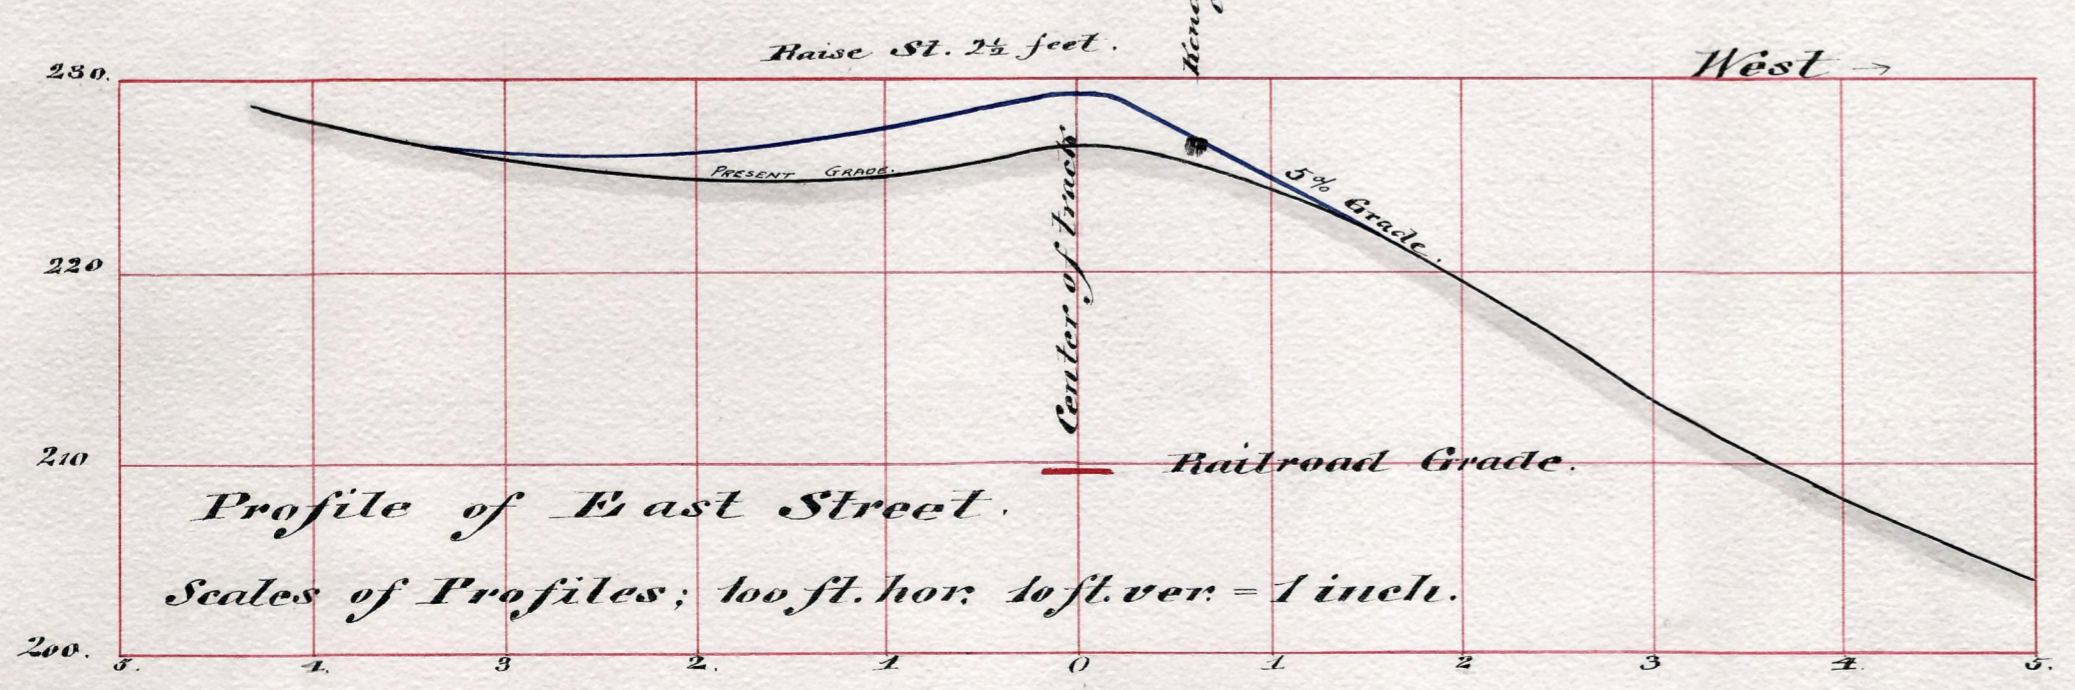 Raise St. 2½ feet.
West →
230.
PRESENT GRADE.
5% Grade.
220
Center of track
210
Railroad Grade.
Profile of East Street.
Scales of Profiles; 100 ft. hor. 10 ft. ver. = 1 inch.
200.
5. 4. 3 2. 1 0 1 2 3 4. 5.